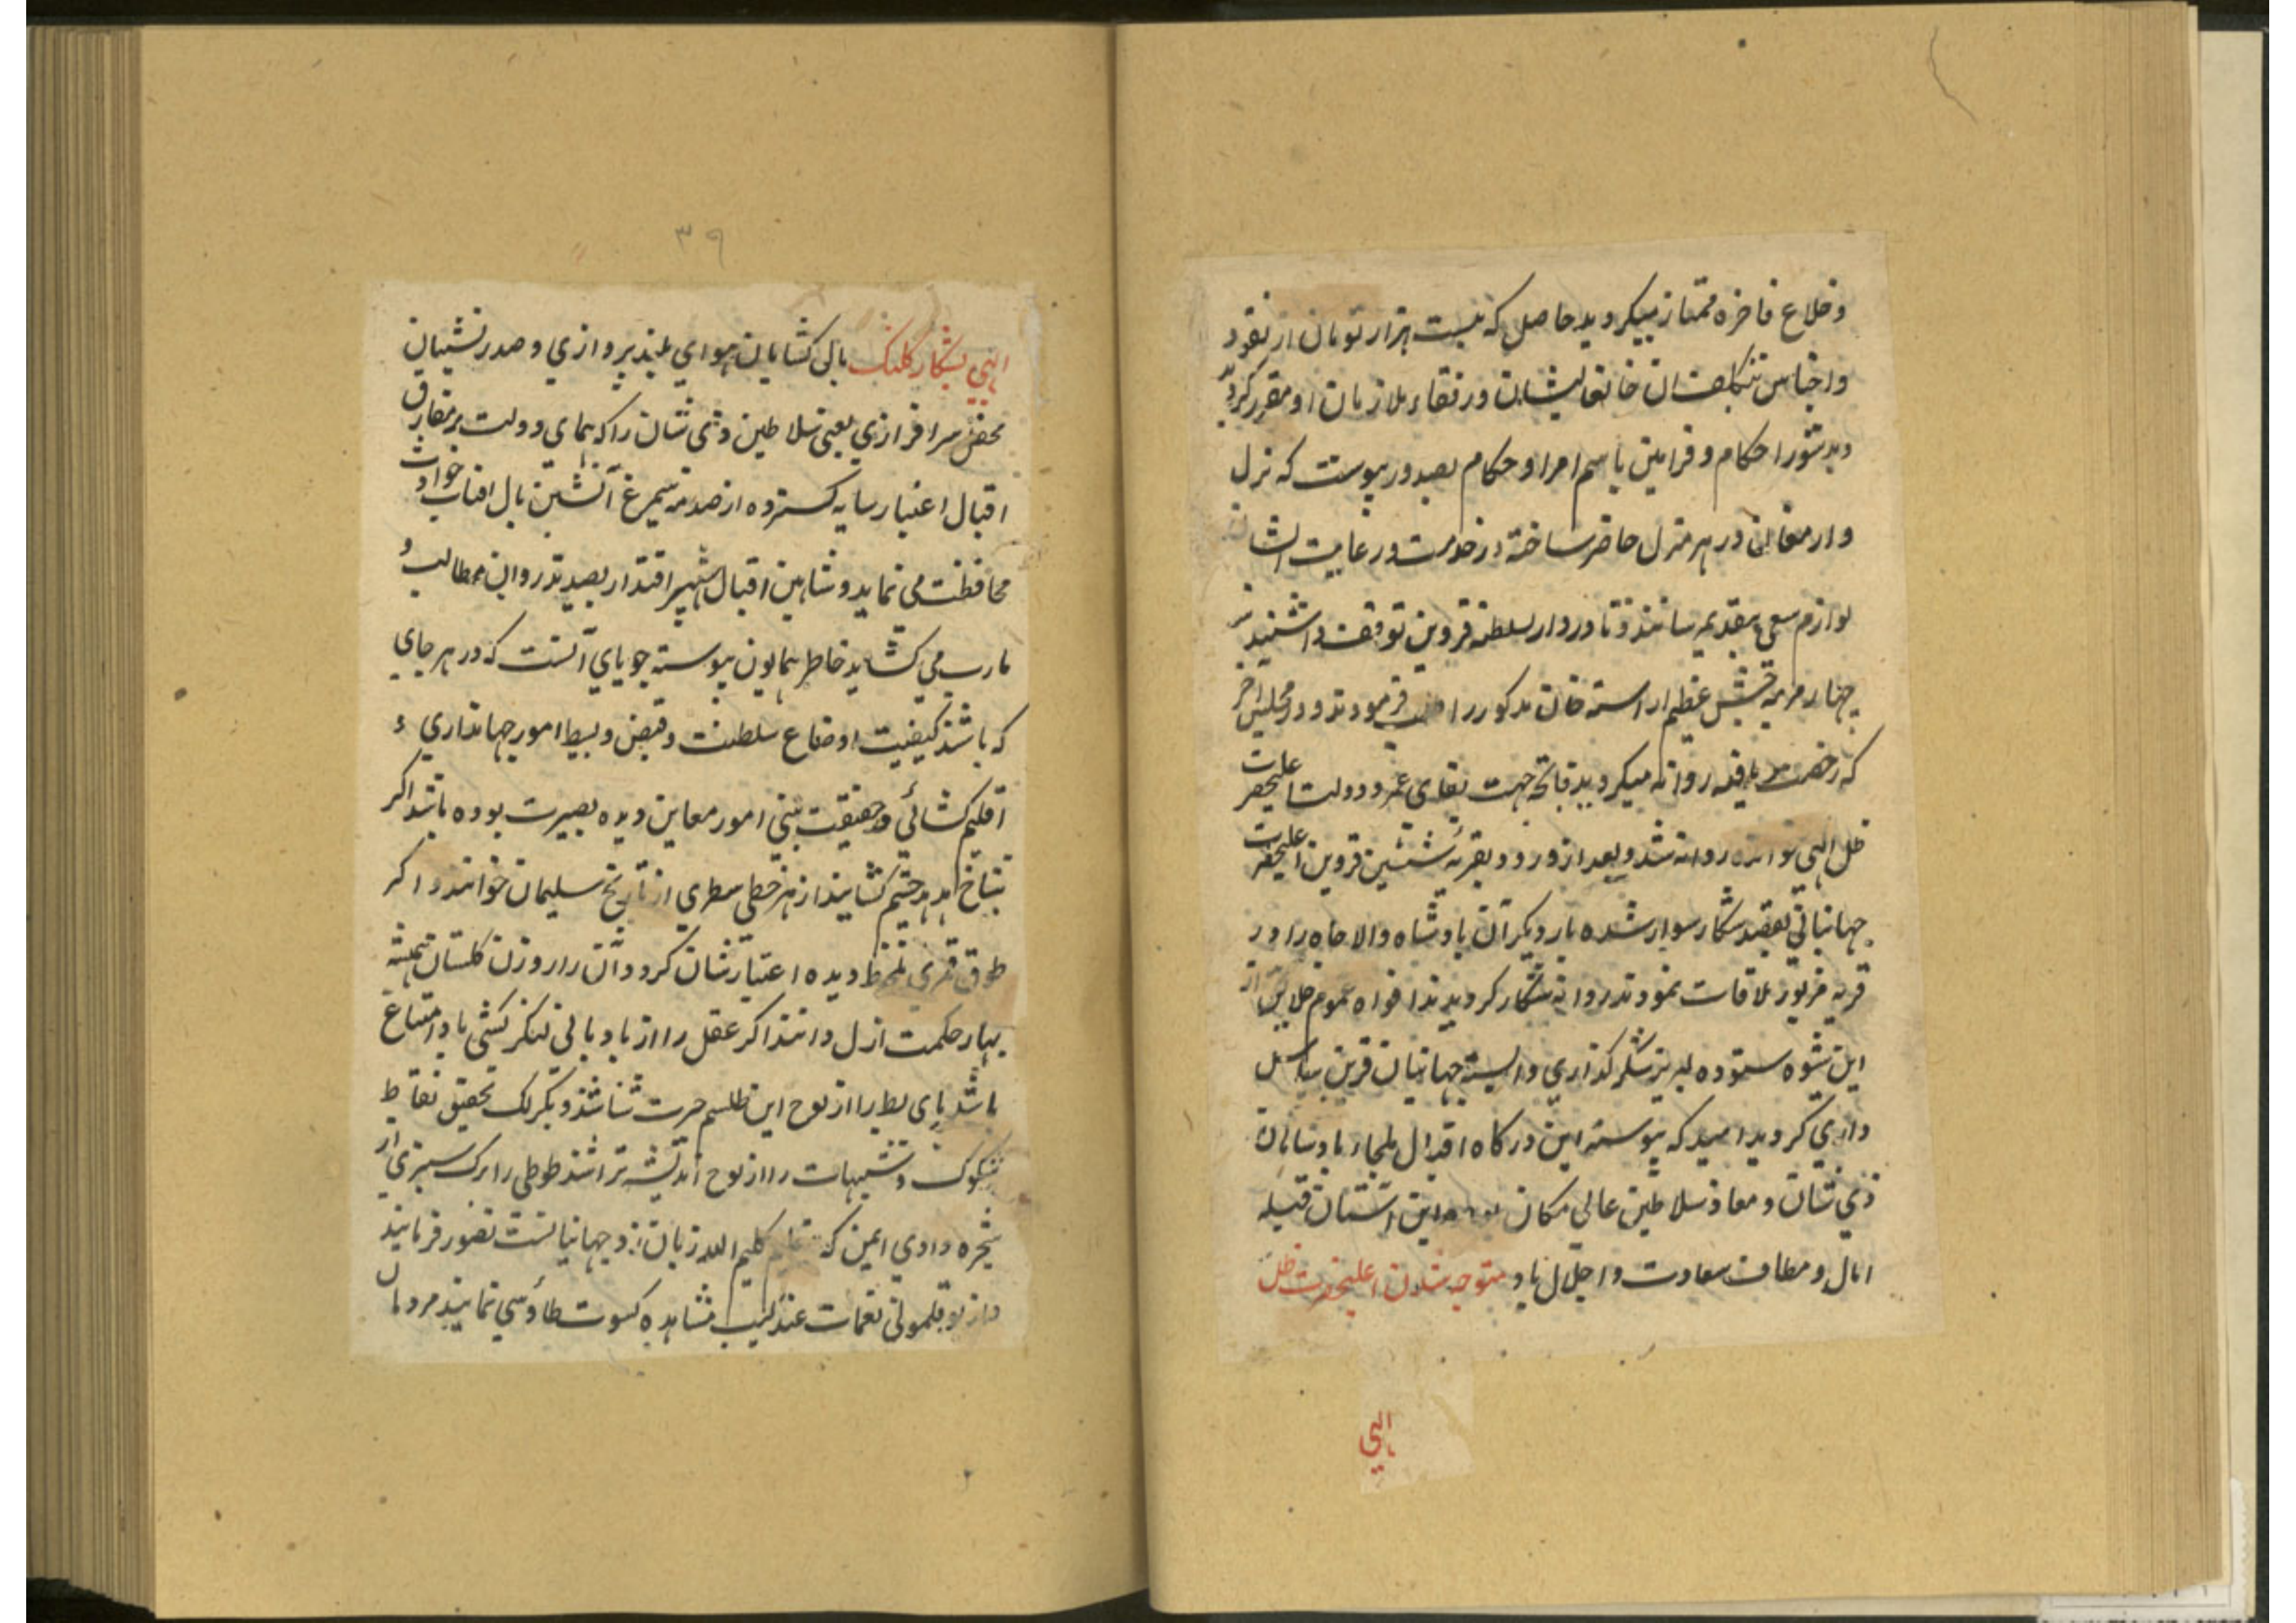 وخلاع فاخره ممتاز میکردید حاصل که بیست هزار تومان از نقود
واجناس بتکلفات خانعالیشان ورفقاء ملازمان او مقرر کردید
ودستور احکام وفرامین باسم امرا وحکام بصدور پیوست که نزل
وارمغانی در هر منزل حاضر ساخته در خدمت ورعایت ایشان
لوازم سعی بتقدیم رسانند وتا در دار السلطنه قزوین توقف داشتند
چهار مرتبه جشن عظیم اراسته خان مذکور را فرمودند ودر مجلس اخر
که رخصت یافته روانه میکردید فاتحه جهت بقای عمر ودولت اعلیحضرت
ظل الهی خوانده روانه شد وبعد از ورود بقریه قزوین اعلیحضرت
جهانبانی بقصد شکار سوار شده بار دیکر آن پادشاه والا جاه را در
قریه مزبور ملاقات نمودند روانه شکار کردیدند افواه عموم خلایق از
این شیوه ستوده لبریز شکر کذاری والسنه جهانیان قرین سپاس
داری کردید امید که پیوسته این درکاه اقبال ملجاء پادشاهان
ذی شان ومعاذ سلاطین عالی مکان بوده این آستان قبله
امال ومطاف سعادت واجلال باد متوجه شدن اعلیحضرت ظل
الهی
۳۹
الهی بشکار کلنک بال کشایان هوای بلند پروازی وصدر نشینان
محفل سرافرازی یعنی سلاطین ذی شان را که همای دولت بر مفارق
اقبال اعتبار سایه کسترده از صدمه سیمرغ آتشین بال افتاب حوادث
محافظت می نماید وشاهین اقبال شهپر اقتدار بصید تذروان مطالب و
مارب می کشاید خاطر همایون پیوسته جویای آنست که در هر جای
که باشند کیفیت اوضاع سلطنت وقبض وبسط امور جهانداری و
اقلیم کشائی وحقیقت بینی امور معاین دیده بصیرت بوده باشد اکر
بتاج هدهد چشم کشایند از هر خطی سطری از تاریخ سلیمان خوانند واکر
طوق قمری ملحوظ دیده اعتبارشان کردد آن را روزن کلستان همیشه
بهار حکمت ازل دانند اکر عقل را از بادبانی لنکر کشتی باد امتناع
باشد پای بط را از نوح این طلسم حیرت شناسند وبکزلک تحقیق نقاط
شکوک وشبهات را از لوح اندیشه تراشند طوطی را برک سبزی از
شجره وادی ایمن که کلیم الله زبان جهانیانست تصور فرمایند
واز بوقلمونی نغمات عندلیب مشاهده کسوت طاوسی نمایند مردمان